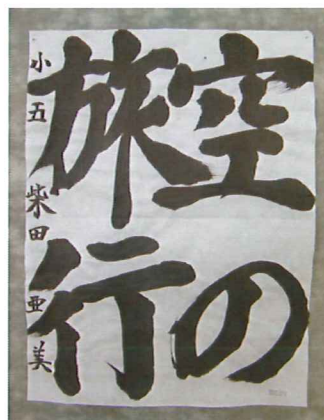 空の
旅行
小五 柴田亜美